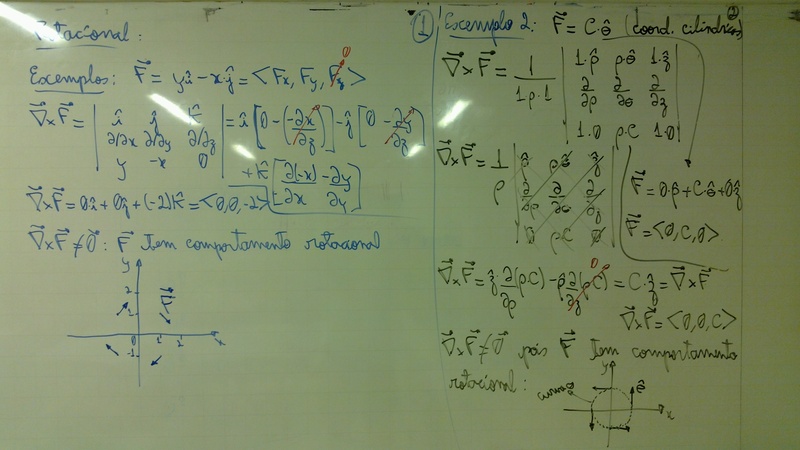 Rotacional:
Exemplos: F⃗ = yî - xĵ = <Fx, Fy, Fz> 0
∇⃗×F⃗ = | î ĵ k̂ | = î[0 - (-∂x/∂z)] - ĵ[0 - ∂y/∂z]
∂/∂x ∂/∂y ∂/∂z
y -x 0
+ k̂[∂(-x)/∂x - ∂y/∂y]
∇⃗×F⃗ = 0î + 0ĵ + (-2)k̂ = <0,0,-2>
∇⃗×F⃗ ≠ 0⃗ : F⃗ tem comportamento rotacional
y
2
1
F⃗
0 1 2 x
-1
1
Exemplo 2: F⃗ = C·θ̂ (coord. cilíndricas)
2
∇⃗×F⃗ = 1/1·ρ·1 | 1·ρ̂ ρ·θ̂ 1·ẑ |
∂/∂ρ ∂/∂θ ∂/∂z
1·0 ρ·C 1·0
∇⃗×F⃗ = 1/ρ | ρ̂ ρθ̂ ẑ |
∂/∂ρ ∂/∂θ ∂/∂z
0 ρC 0
F⃗ = 0·ρ̂ + C·θ̂ + 0ẑ
F⃗ = <0, C, 0>
∇⃗×F⃗ = ẑ ∂(ρC)/∂ρ - ρ̂ ∂(ρC)/∂z 0 = C·ẑ = ∇⃗×F⃗
∇⃗×F⃗ = <0,0,C>
∇⃗×F⃗ ≠ 0⃗ pois F⃗ tem comportamento
rotacional:
y
θ̂
x